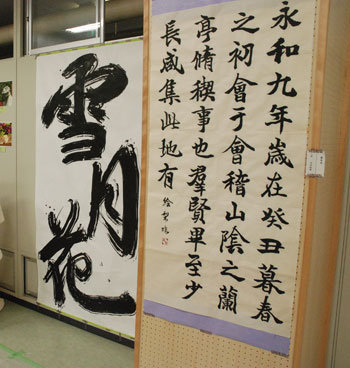 永和九年歳在癸丑暮春
之初會于會稽山陰之蘭
亭脩禊事也羣賢畢至少
長咸集此地有
雪月花